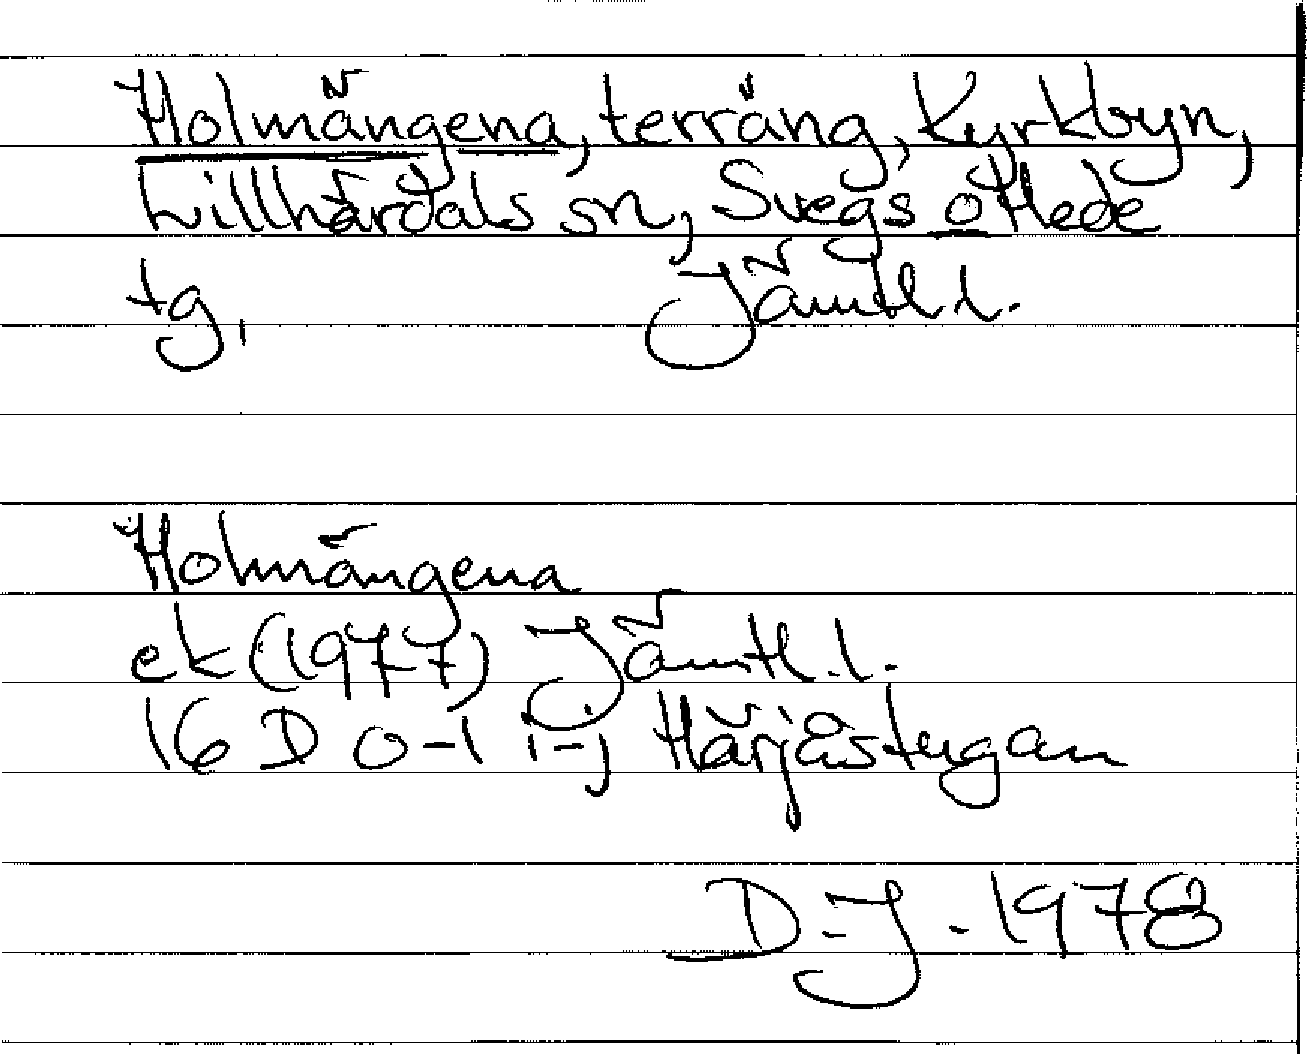 Holmängena, terräng, Kyrkbyn,
Lillhärdals sn, Svegs o Hede
tg, Jämtl. l.
Holmängena
ek (1977) Jämtl. l.
16 D 0-1 i-j Härjåstugan
D-J - 1978